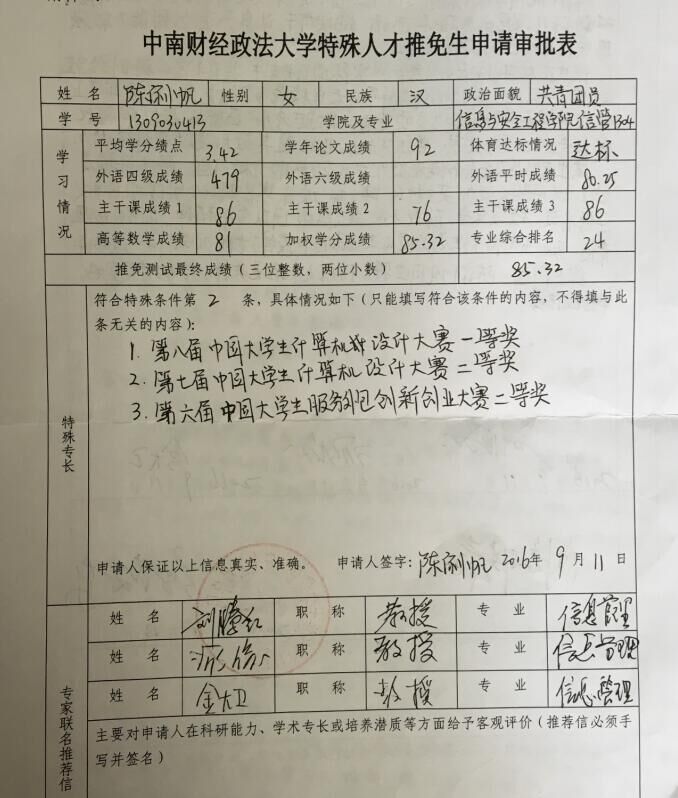 中南财经政法大学特殊人才推免生申请审批表
姓 名 陈 帆 性别 女 民族 汉 政治面貌 共青团员
学 号 1309030413 学院及专业 信息与安全工程学院信管1304
学习情况
平均学分绩点 3.42 学年论文成绩 92 体育达标情况 达标
外语四级成绩 479 外语六级成绩 外语平时成绩 86.25
主干课成绩1 86 主干课成绩2 76 主干课成绩3 86
高等数学成绩 81 加权学分成绩 85.32 专业综合排名 24
推免测试最终成绩（三位整数，两位小数） 85.32
特殊专长
符合特殊条件第 2 条，具体情况如下（只能填写符合该条件的内容，不得填与此
条无关的内容）：
1. 第八届中国大学生计算机设计大赛一等奖
2. 第七届中国大学生计算机设计大赛二等奖
3. 第六届中国大学生服务外包创新创业大赛二等奖
申请人保证以上信息真实、准确。 申请人签字：陈 帆 2016年 9月 11日
专家联名推荐信
姓 名 刘腾红 职 称 教授 专 业 信息管理
姓 名 职 称 教授 专 业 信息管理
姓 名 金大卫 职 称 教授 专 业 信息管理
主要对申请人在科研能力、学术专长或培养潜质等方面给予客观评价（推荐信必须手
写并签名）